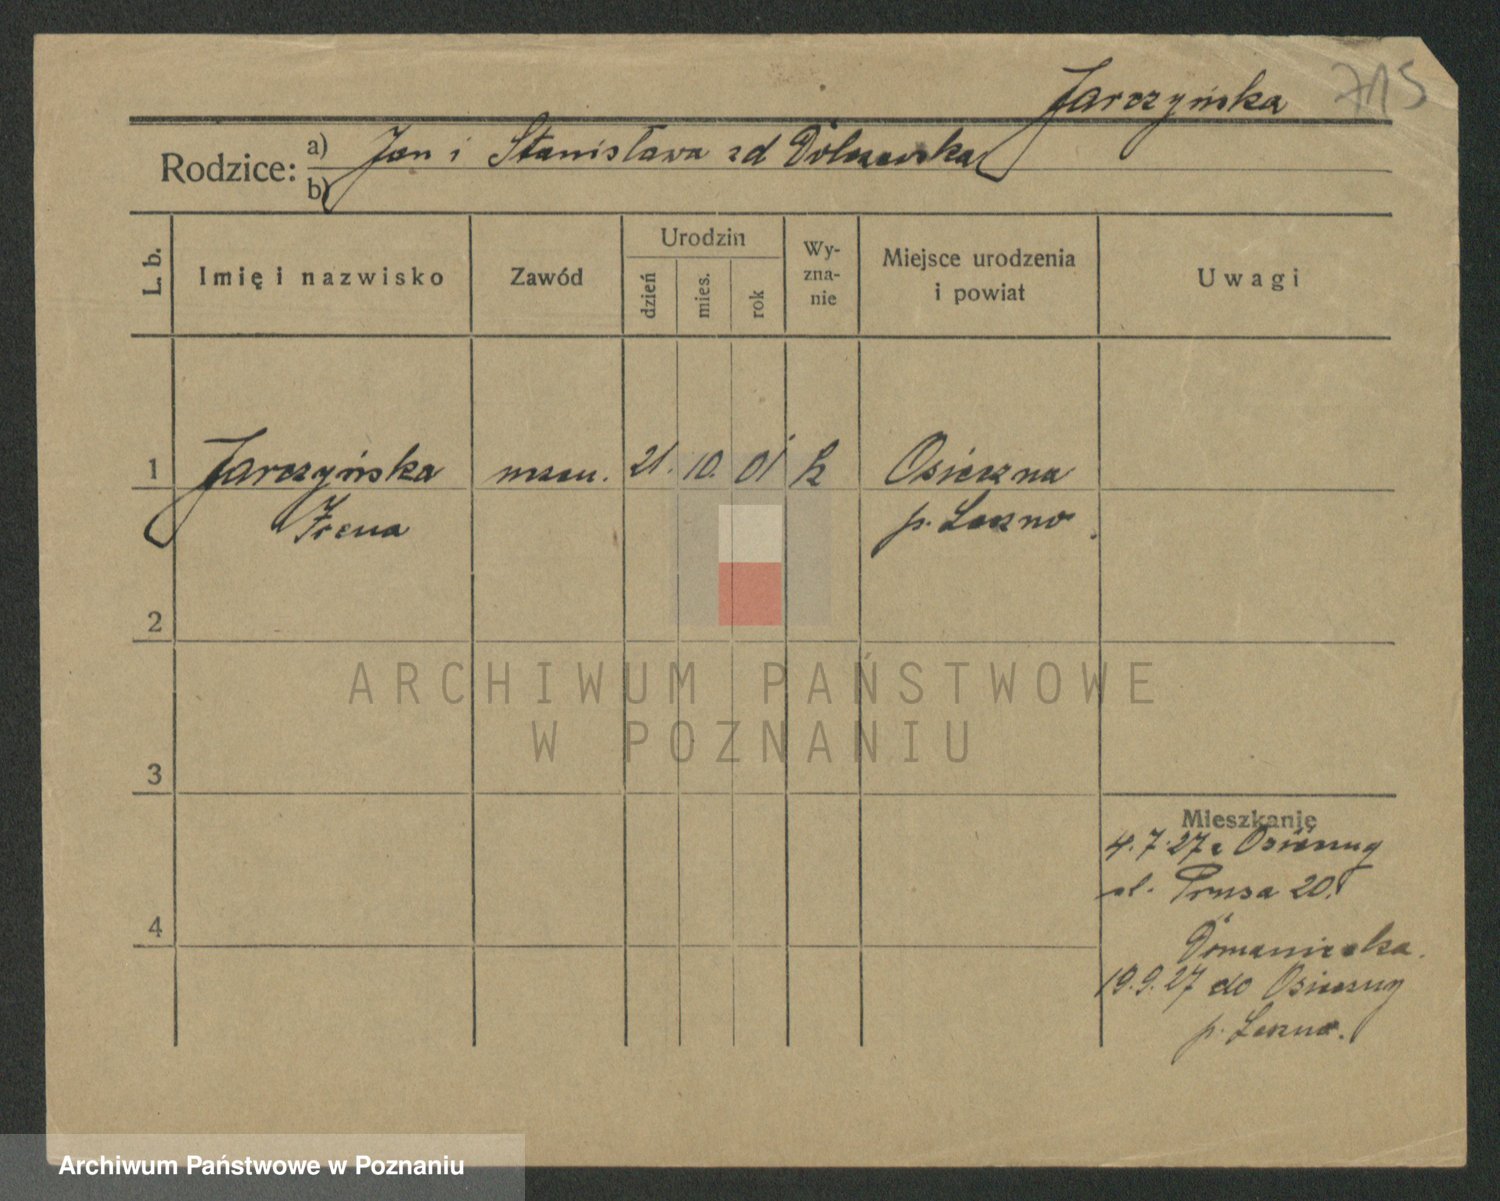 Jarczyńska 715
Rodzice: a) Jan i Stanisława zd
b)
L. b. Imię i nazwisko Zawód Urodzin dzień mies. rok Wy-zna-nie Miejsce urodzenia i powiat Uwagi
1 Jarczyńska 21. 10. 01 Osieczna
Irena p. Leszno
2
ARCHIWUM PAŃSTWOWE
W POZNANIU
3
Mieszkanie
4.7.27 z Osieczny
ul. Prusa 20.
4
19.9.27 do Osieczny
p. Leszno.
Archiwum Państwowe w Poznaniu